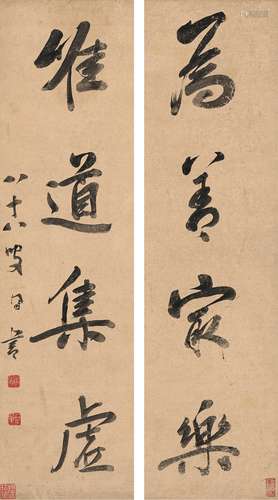 為善最樂
唯道集虛
八十八叟同書